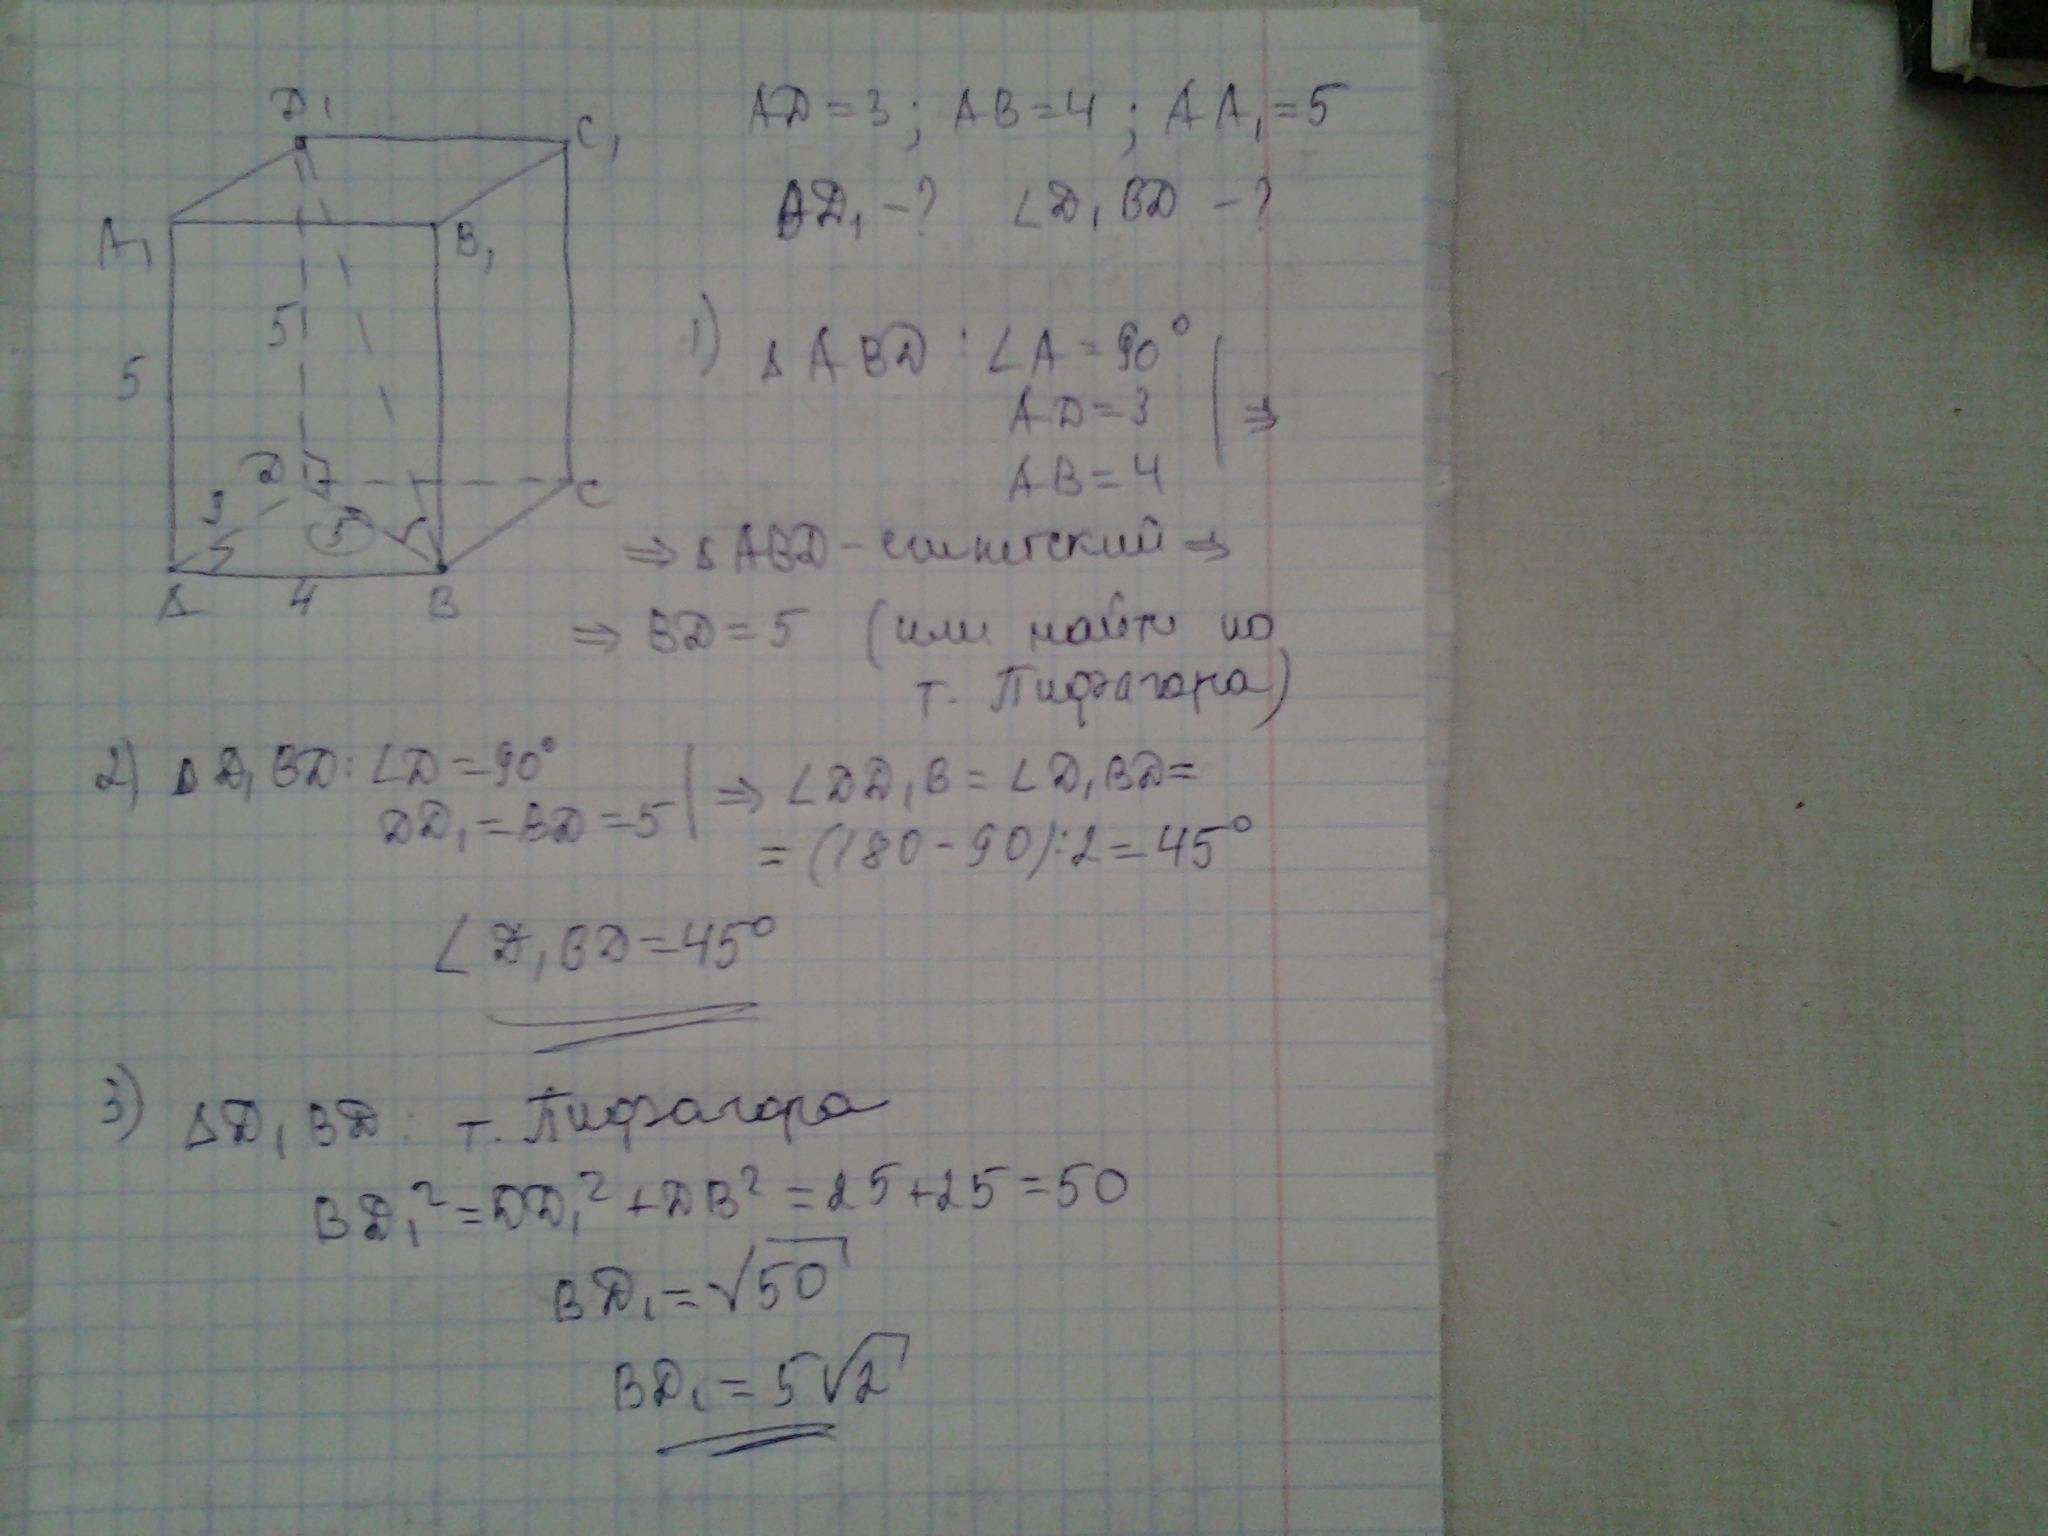 D₁
C₁
A₁
B₁
5
5
D
C
3
5
A
4
B
AD=3; AB=4; AA₁=5
BD₁-? ∠D₁BD-?
1) ΔABD: ∠A=90°
AD=3
AB=4
⇒
⇒ΔABD-египетский⇒
⇒BD=5 (или найти по
т. Пифагора)
2) ΔD₁BD: ∠D=90°
DD₁=BD=5
⇒∠DD₁B=∠D₁BD=
=(180-90):2=45°
∠D₁BD=45°
3) ΔD₁BD: т. Пифагора
BD₁²=DD₁²+DB²=25+25=50
BD₁=√50
BD₁=5√2